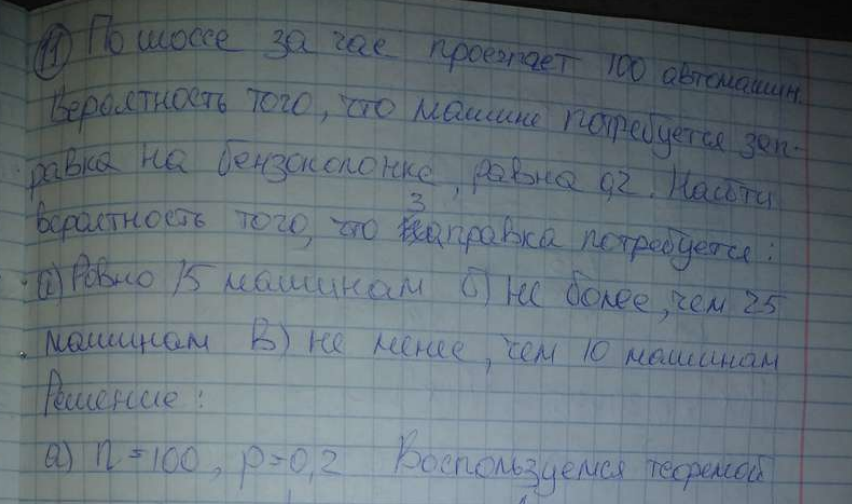 11 По шоссе за час проезжает 100 автомашин.
Вероятность того, что машине потребуется зап-
равка на бензоколонке, равна 0,2. Найти
вероятность того, что заправка потребуется:
а) Ровно 15 машинам б) не более, чем 25
машинам В) не менее, чем 10 машинам
Решение:
а) n=100, p=0,2 Воспользуемся теоремой